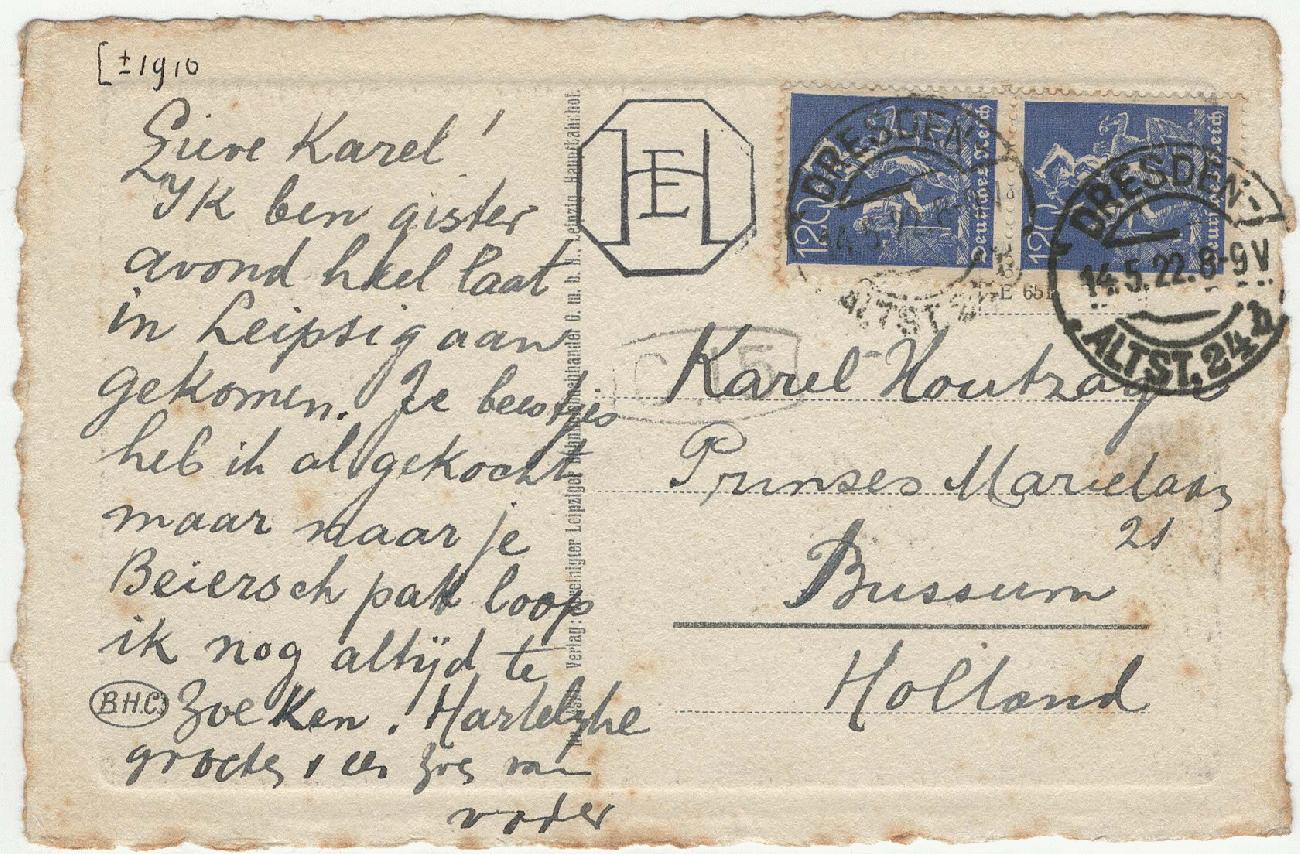 [±1910
Lieve Karel!
Ik ben gister
avond heel laat
in Leipsig aan
gekomen. Je beestjes
heb ik al gekocht
maar naar je
Beiersch pak loop
ik nog altijd te
zoeken. Hartelijke
groeten en een zoen van
vader
B.H.C.
Verlag: Vereinigter Leipziger Bahnhofsbuchhandel G. m. b. H., Leipzig, Hauptbahnhof.
EH
120 Deutsches Reich
120 Deutsches Reich
DRESDEN-
14.5.22.8-9V
ALTST. 24 h
DRESDEN-
14.5.22.8-9V
ALTST. 24 h
E 651
C 15
Karel Houtzager
Prinses Marielaan
21
Bussum
Holland